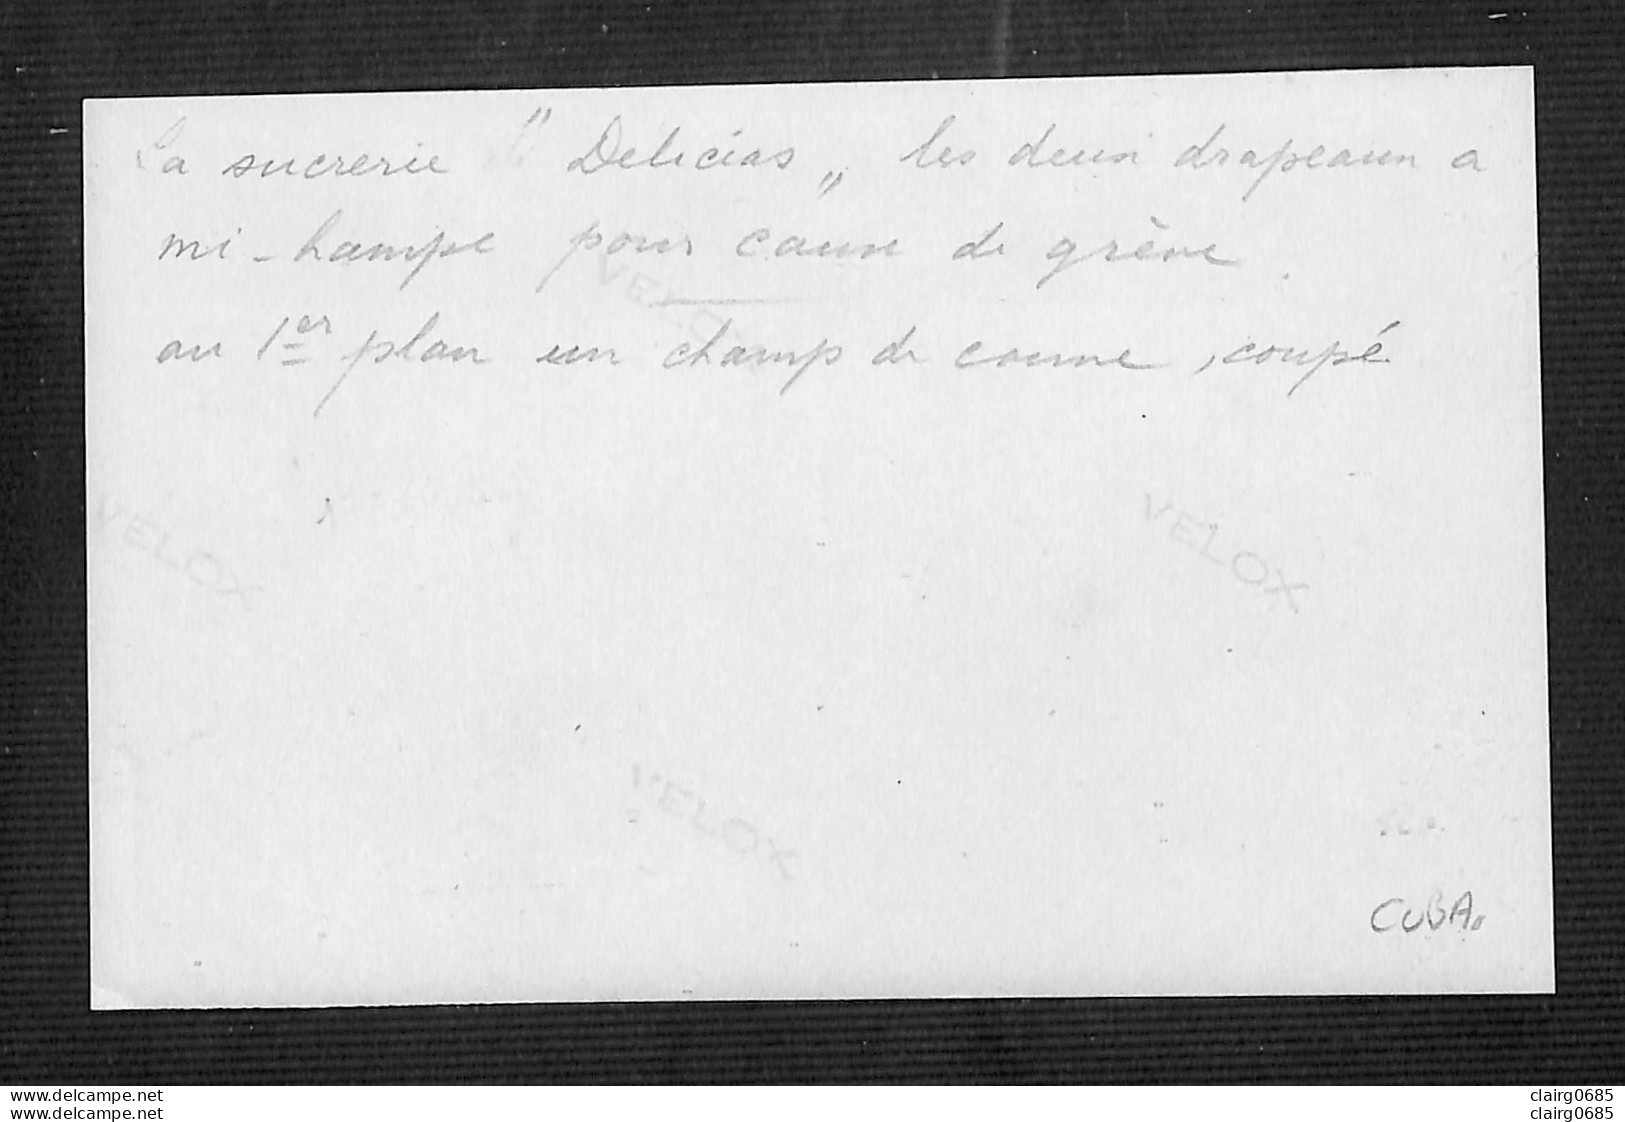 La sucrerie " Delicias „ les deux drapeaux a
mi-hampe pour cause de grève
au 1er plan un champ de canne, coupé
VELOX
VELOX
VELOX
VELOX
CUBA
www.delcampe.net clairg0685
www.delcampe.net clairg0685